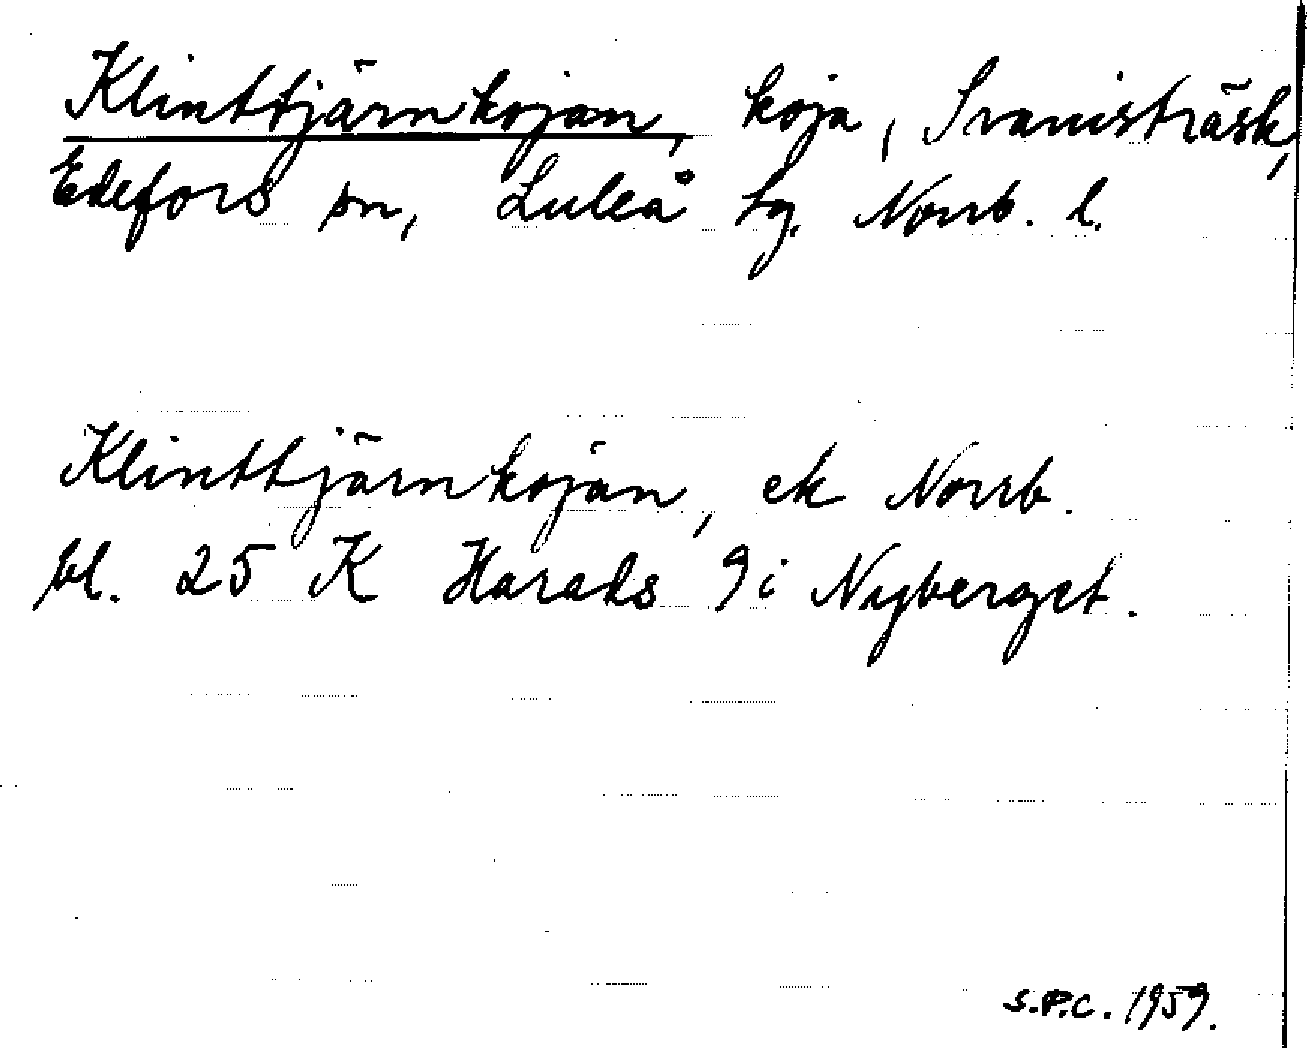 Klinttjärnkojan, koja, Svanisträsk,
Edefors sn, Luleå tg. Norrb. l.
Klinttjärnkojan, ek Norrb.
bl. 25 K Harads 9 i Nyberget.
S.P.C. 1959.